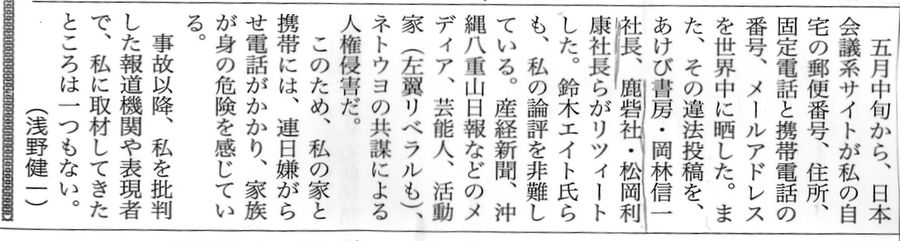 五月中旬から、日本
会議系サイトが私の自
宅の郵便番号、住所、
固定電話と携帯電話の
番号、メールアドレス
を世界中に晒した。ま
た、その違法投稿を、
あけび書房・岡林信一
社長、鹿砦社・松岡利
康社長らがリツィート
した。鈴木エイト氏ら
も、私の論評を非難し
ている。産経新聞、沖
縄八重山日報などのメ
ディア、芸能人、活動
家（左翼リベラルも）、
ネトウヨの共謀による
人権侵害だ。
このため、私の家と
携帯には、連日嫌がら
せ電話がかかり、家族
が身の危険を感じてい
る。
事故以降、私を批判
した報道機関や表現者
で、私に取材してきた
ところは一つもない。
（浅野健一）